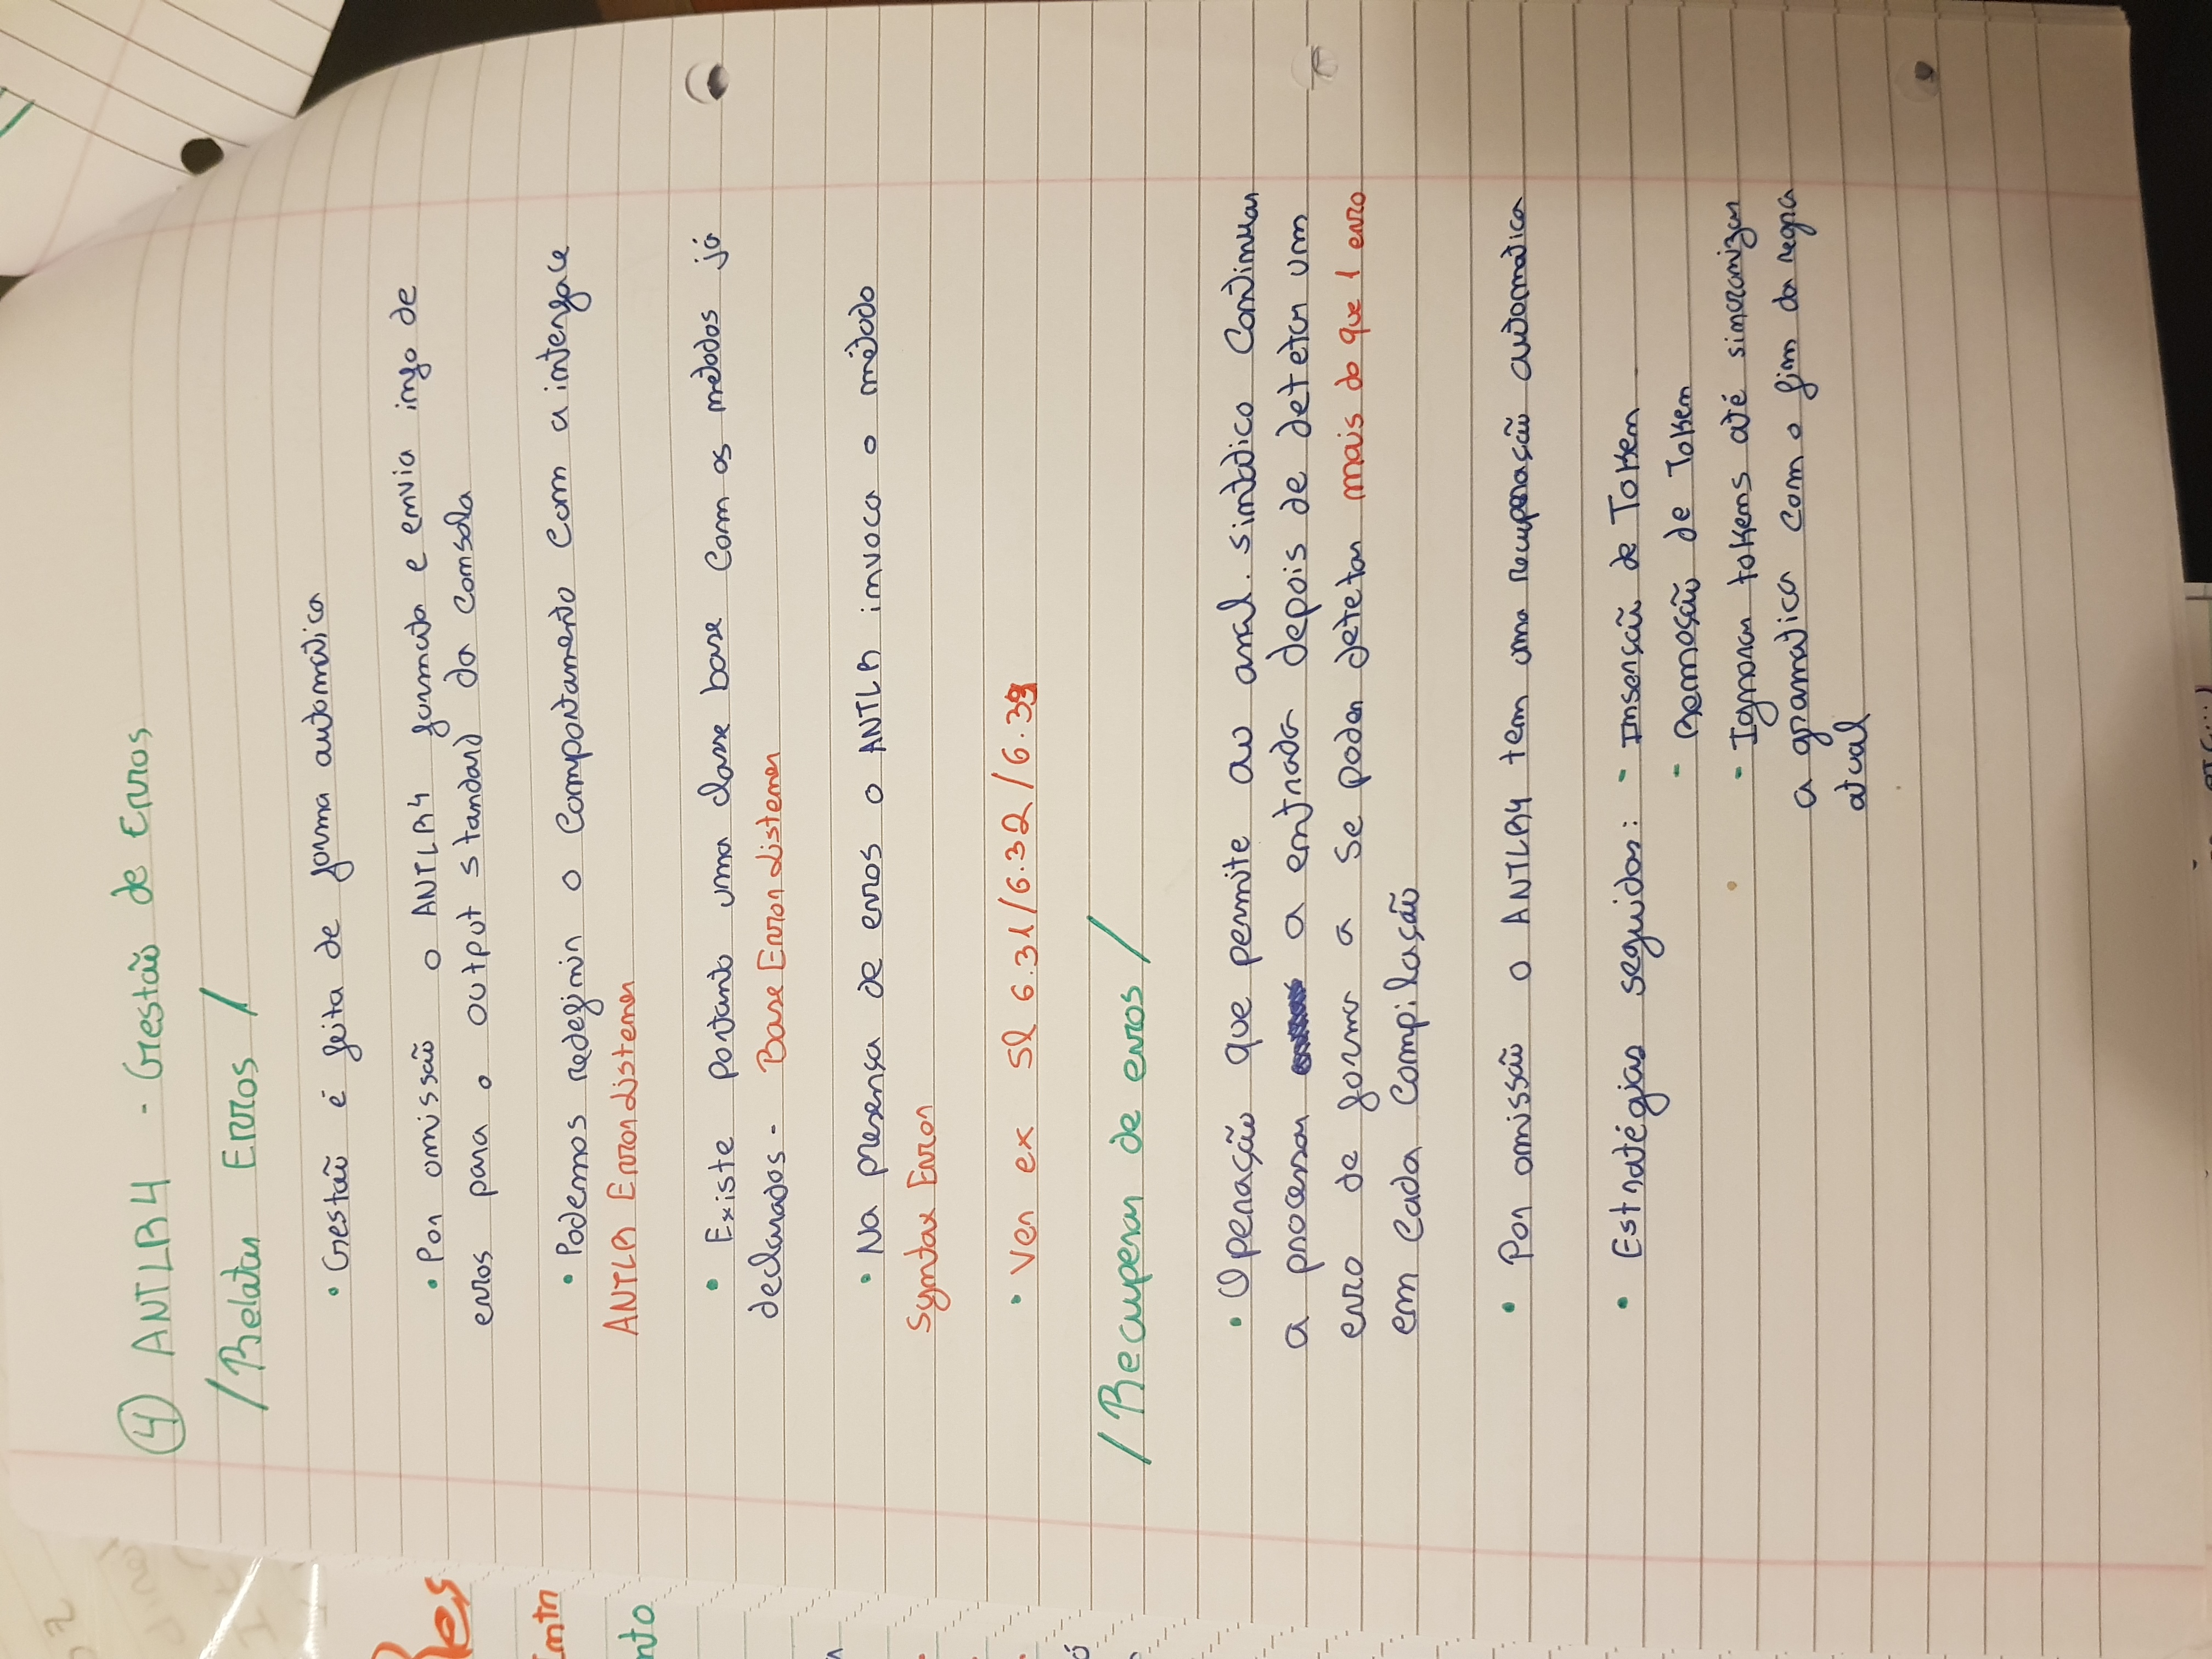 ④ ANTLR4 - Gestão de Erros
/Relatar Erros/
• Gestão é feita de forma automática
• Por omissão o ANTLR4 formata e envia info de
erros para o output standard da consola
• Podemos redefinir o comportamento com a interface
ANTLR ErrorListener
• Existe portanto uma classe base com os métodos já
declarados - Base ErrorListener
• Na presença de erros o ANTLR invoca o método
Syntax Error
• Ver ex Sl 6.31/6.32/6.33
/Recuperar de erros/
• Operação que permite ao anal. sintático continuar
a processar a entrada depois de detetar um
erro de forma a se poder detetar mais do que 1 erro
em cada compilação
• Por omissão o ANTLR4 tem uma recuperação automatica
• Estratégias seguidas: - Inserção de Token
- Remoção de Token
- Ignorar tokens até sincronizar
a gramatica com o fim da regra
atual